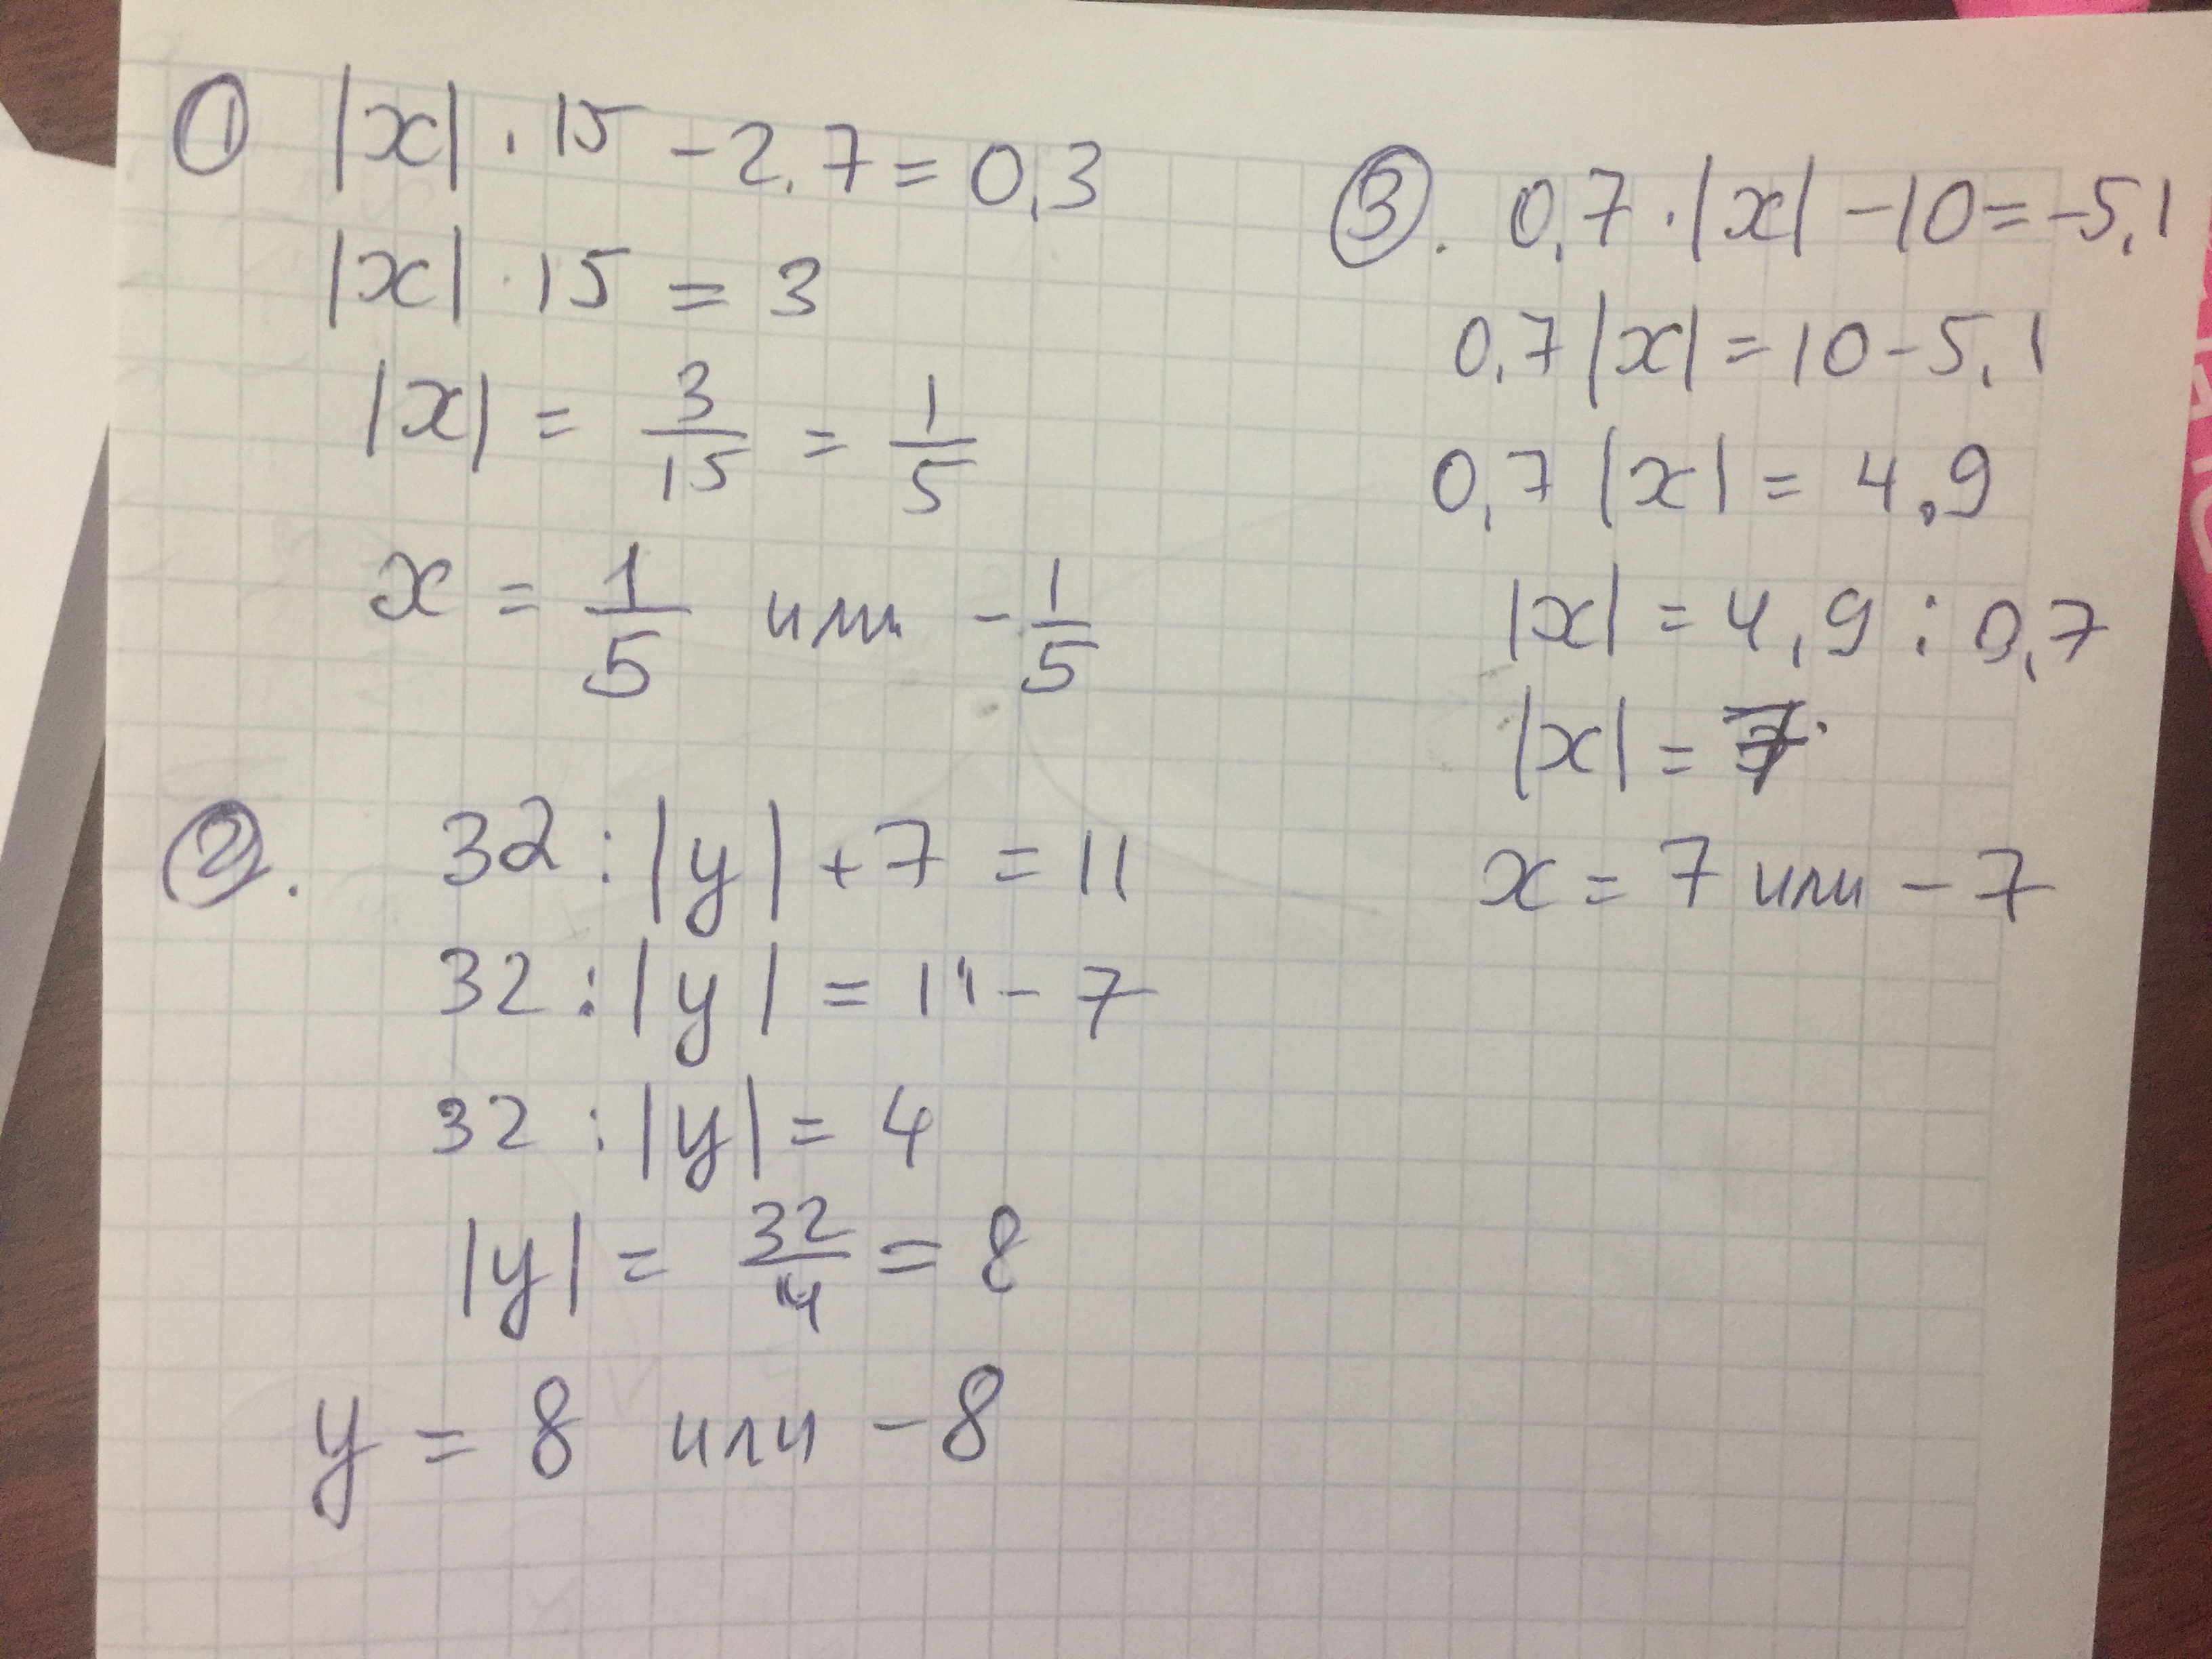 ① |x| · 15 - 2.7 = 0,3
|x| · 15 = 3
|x| = 3/15 = 1/5
x = 1/5 или - 1/5
②. 32 : |y| + 7 = 11
32 : |y| = 11 - 7
32 : |y| = 4
|y| = 32/4 = 8
y = 8 или - 8
③. 0,7 · |x| - 10 = - 5,1
0,7 |x| = 10 - 5,1
0,7 |x| = 4,9
|x| = 4,9 : 0,7
|x| = 7.
x = 7 или - 7